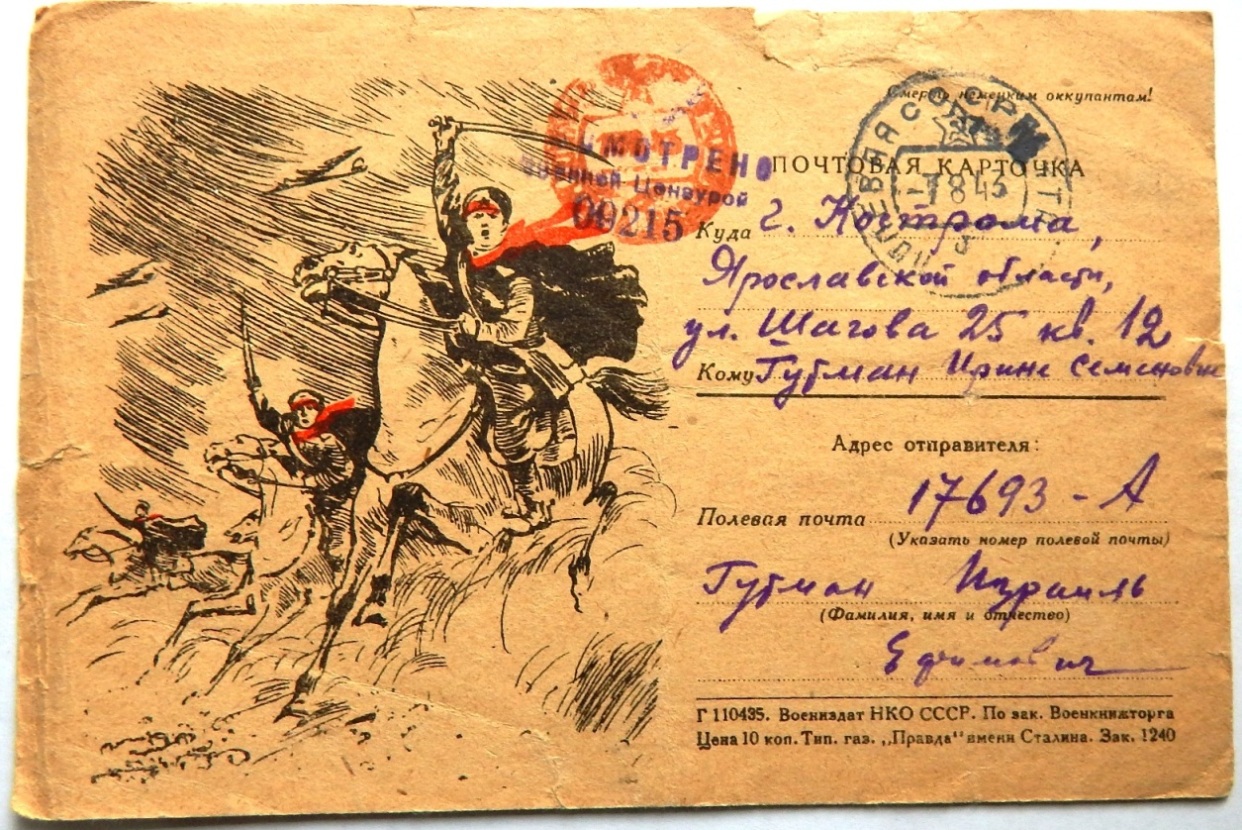 Смерть немецким оккупантам!
ПОЧТОВАЯ КАРТОЧКА
ПОЛЕВАЯ СССР
7 8 43
СМОТРЕНО
Военной Цензурой
09215
Куда г. Кострома,
Ярославской области,
ул. Шагова 25 кв. 12
Кому Гутман Ирине Семеновне
Адрес отправителя:
Полевая почта 17693-А
(Указать номер полевой почты)
Гутман Израиль
(Фамилия, имя и отчество)
Ефимович
Г 110435. Воениздат НКО СССР. По зак. Военкнижторга
Цена 10 коп. Тип. газ. „Правда" имени Сталина. Зак. 1240